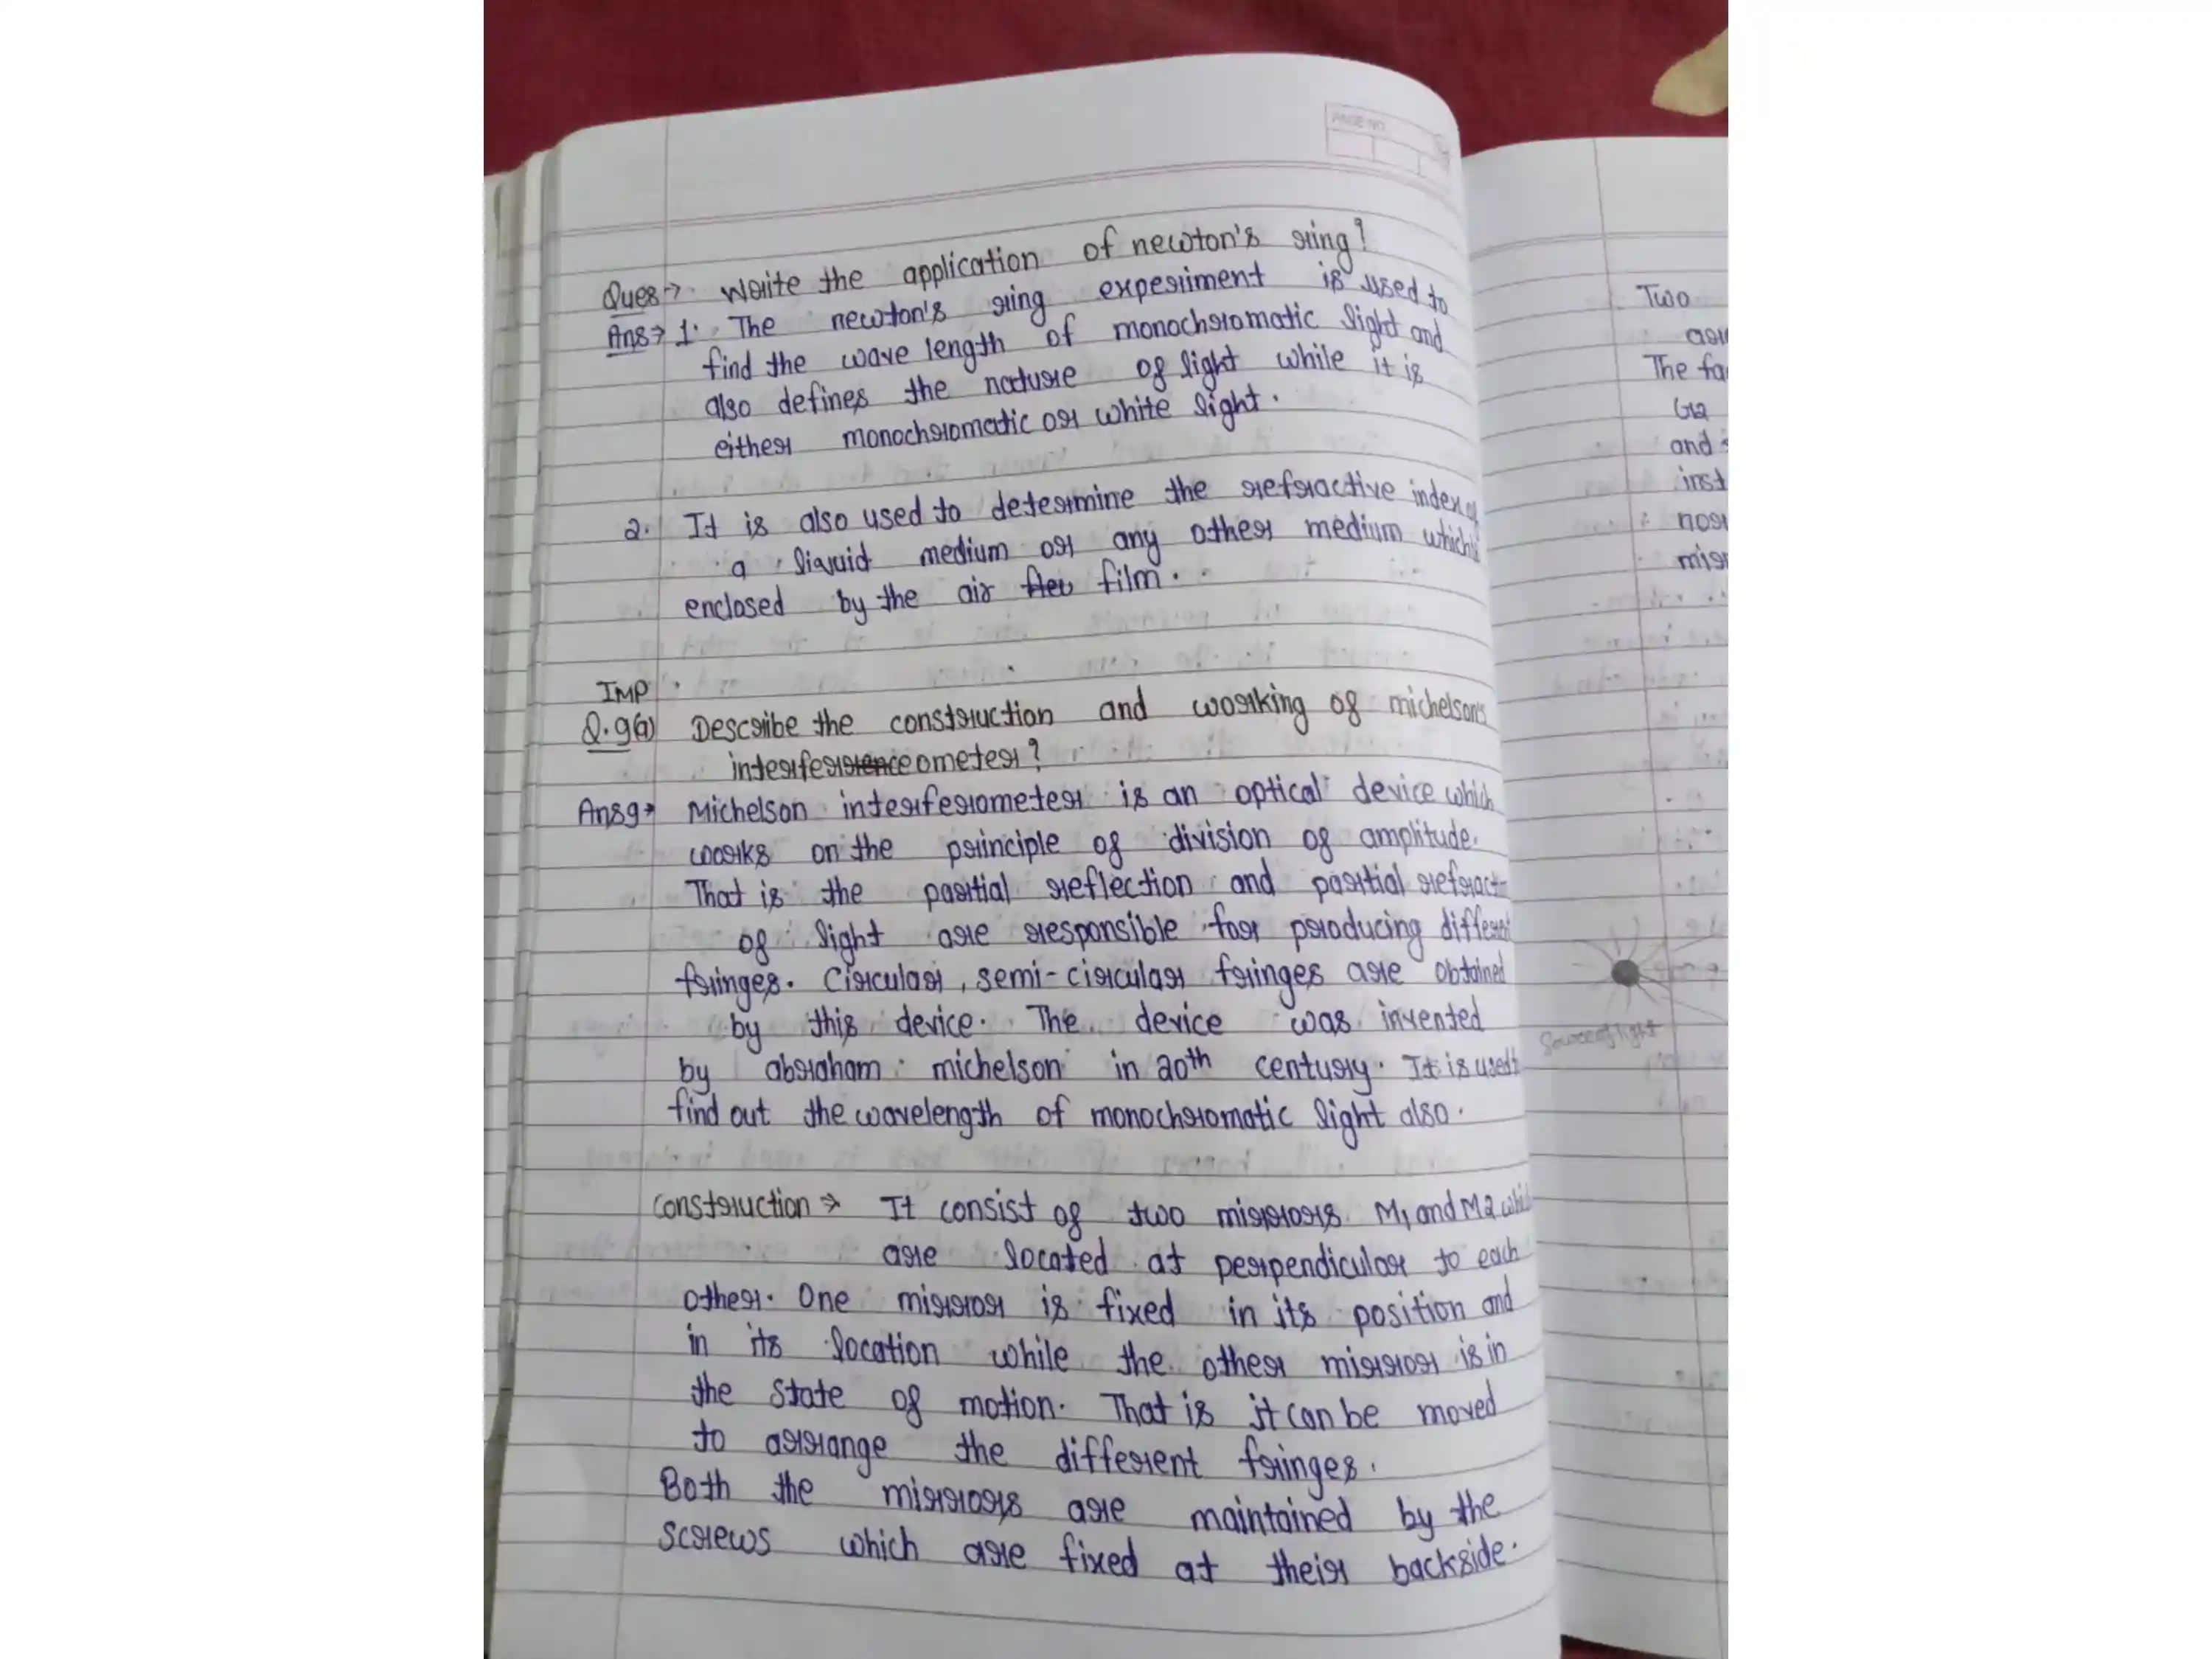 PAGE NO.
Ques→ Write the application of newton's ring?
Ans→ 1. The newton's ring experiment is used to
find the wave length of monochromatic light and
also defines the nature of light while it is
either monochromatic or white light.
2. It is also used to determine the refractive index of
a liquid medium or any other medium which is
enclosed by the air film.
IMP
Q.9(a) Describe the construction and working of michelson's
interferometer?
Ans9→ Michelson interferometer is an optical device which
works on the principle of division of amplitude.
That is the partial reflection and partial refract-
of light are responsible for producing different
fringes. Circular, semi-circular fringes are obtained
by this device. The device was invented
by abraham michelson in 20th century. It is used
find out the wavelength of monochromatic light also.
Construction → It consist of two mirrors M1 and M2 which
are located at perpendicular to each
other. One mirror is fixed in its position and
in its location while the other mirror is in
the state of motion. That is it can be moved
to arrange the different fringes.
Both the mirrors are maintained by the
screws which are fixed at their backside.
Two
The fa
G12
and
inst
Source of light